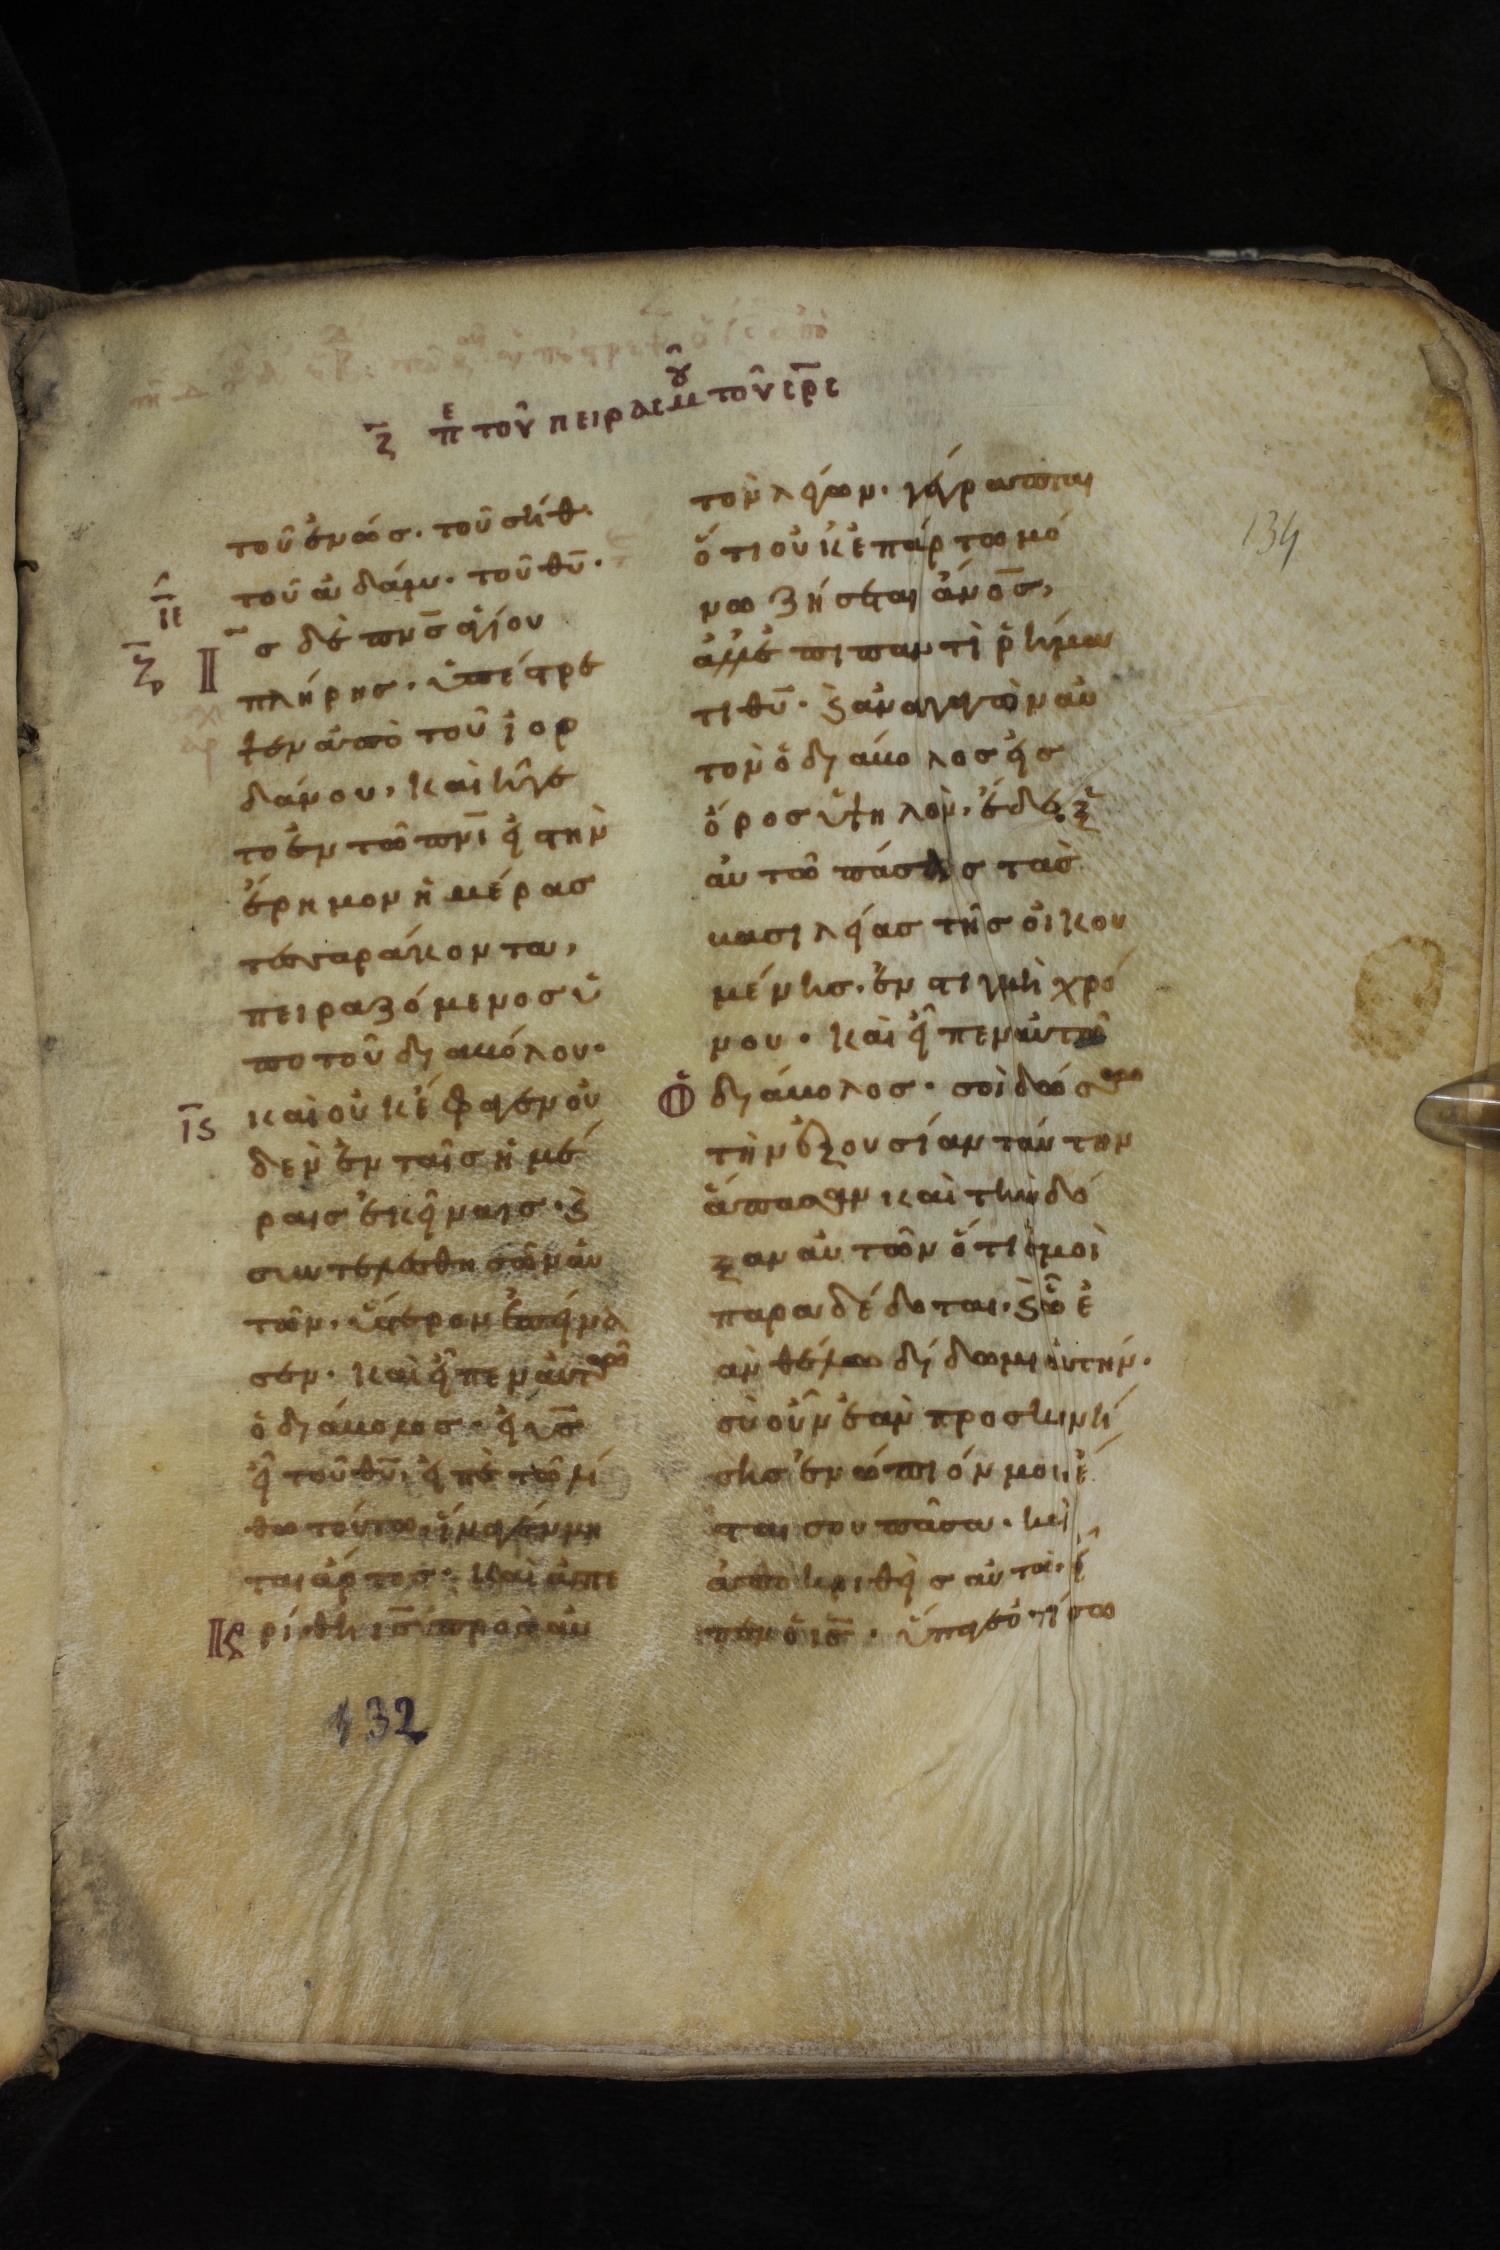 ζ πε τοῦ πειρασμοῦ τοῦ ιρε
134
τοῦ ἐνώσ· τοῦ σήθ·
τοῦ ἀδάμ· τοῦ θυ·
ιε
ζ Ισ δὲ πνσ ἁγίου
πλήρησ· ὑπέστρε
ψεν ἀπὸ τοῦ ἰορ
δάνου, καὶ ἤγε
το ἐν τῶ πνι εἰ στὴν
ἔρημον ἡμέρασ
τεσσαράκοντα,
πειραζόμενοσ ὑ
πο τοῦ διαβόλου·
ις καὶ οὐκ ἔφαγεν οὐ
δεν ἐν ταῖσ ἡμέ
ραισ ἐκείναισ· ϗ
συντελεσθησῶν αὐ
τῶν, ὕστερον ἐπείνα
σεν· καὶ εἶπεν αὐτῶ
ὁ διάβολοσ· εἰ υσ
εἶ τοῦ θυ, εἰπὲ τῶ λί
θω τούτω, ἵνα γένη
ται ἄρτοσ· καὶ ἀπε
Ις ρίθη ισ πρὸσ αὐ
τὸν λέγων· γέγραπται
ὅτι οὐκ ἐπ ἄρτω μό
νω ζήσεται ἄνοσ,
ἀλλ ἐπι παντὶ ῥήμα
τι θυ· ϗ ἀναγαγὼν αὐ
τὸν ὁ διάβολοσ εἰσ
ὄροσ ὑψηλὸν, ἔδειξ
αὐτῶ πάσασ τὰσ
βασιλείασ τῆσ οἰκου
μένησ· ἐν στιγμῆ χρό
νου· καὶ εἶπεν αὐτῶ
ὁ διάβολοσ· σοὶ δώσω
τὴν ἐξουσίαν ταύτην
ἅπασαν καὶ τὴν δό
ξαν αὐτῶν ὅτι ἐμοὶ
παραδέδοται· ϗ ὧ ἐ
ὰν θέλω δίδωμι αὐτήν·
σὺ οὖν ἐὰν προσκυνή
σησ ἐνώπιόν μου, ἔ
σται σου πᾶσα· καὶ
ἀποκριθεὶσ αὐτῶ, εἶ
πεν ὁ ισ· ὕπαγε ὀπίσω
132